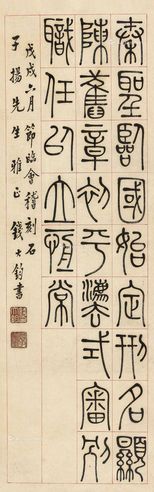 秦聖臨國始定刑名顯
陳舊章初平灋式審別
職任以立恆常
戊戌六月節臨會稽刻石
子揚先生雅正 錢大鈞書